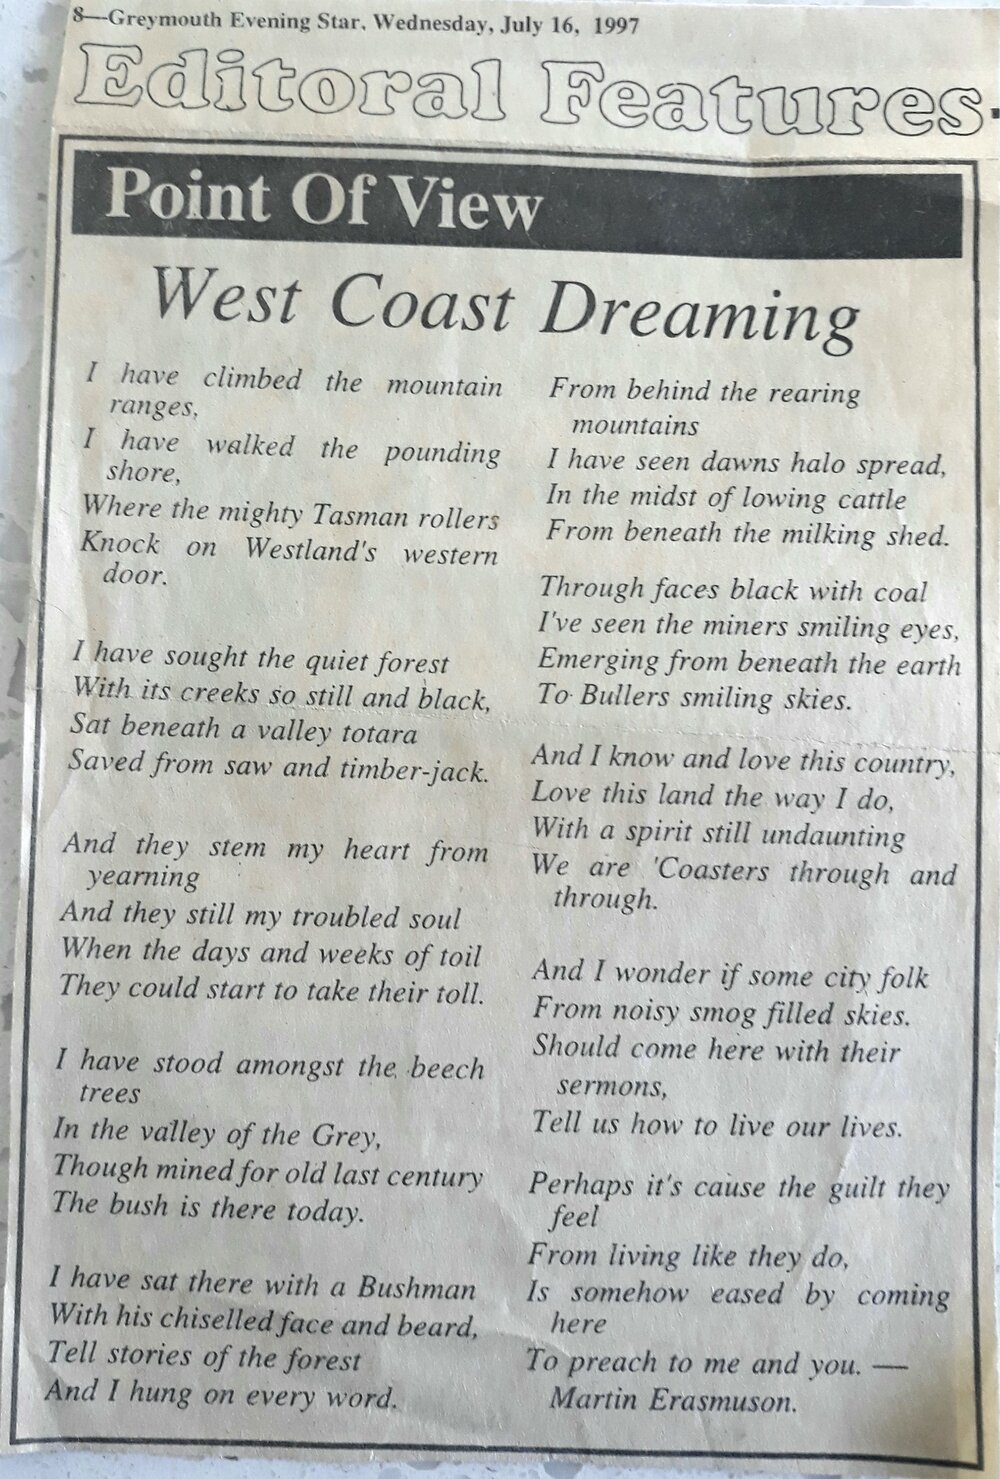 8—Greymouth Evening Star, Wednesday, July 16, 1997
Editoral Features-
Point Of View
West Coast Dreaming
I have climbed the mountain
ranges,
I have walked the pounding
shore,
Where the mighty Tasman rollers
Knock on Westland's western
door.
I have sought the quiet forest
With its creeks so still and black,
Sat beneath a valley totara
Saved from saw and timber-jack.
And they stem my heart from
yearning
And they still my troubled soul
When the days and weeks of toil
They could start to take their toll.
I have stood amongst the beech
trees
In the valley of the Grey,
Though mined for old last century
The bush is there today.
I have sat there with a Bushman
With his chiselled face and beard,
Tell stories of the forest
And I hung on every word.
From behind the rearing
mountains
I have seen dawns halo spread,
In the midst of lowing cattle
From beneath the milking shed.
Through faces black with coal
I've seen the miners smiling eyes,
Emerging from beneath the earth
To Bullers smiling skies.
And I know and love this country,
Love this land the way I do,
With a spirit still undaunting
We are 'Coasters through and
through.
And I wonder if some city folk
From noisy smog filled skies.
Should come here with their
sermons,
Tell us how to live our lives.
Perhaps it's cause the guilt they
feel
From living like they do,
Is somehow eased by coming
here
To preach to me and you. —
Martin Erasmuson.